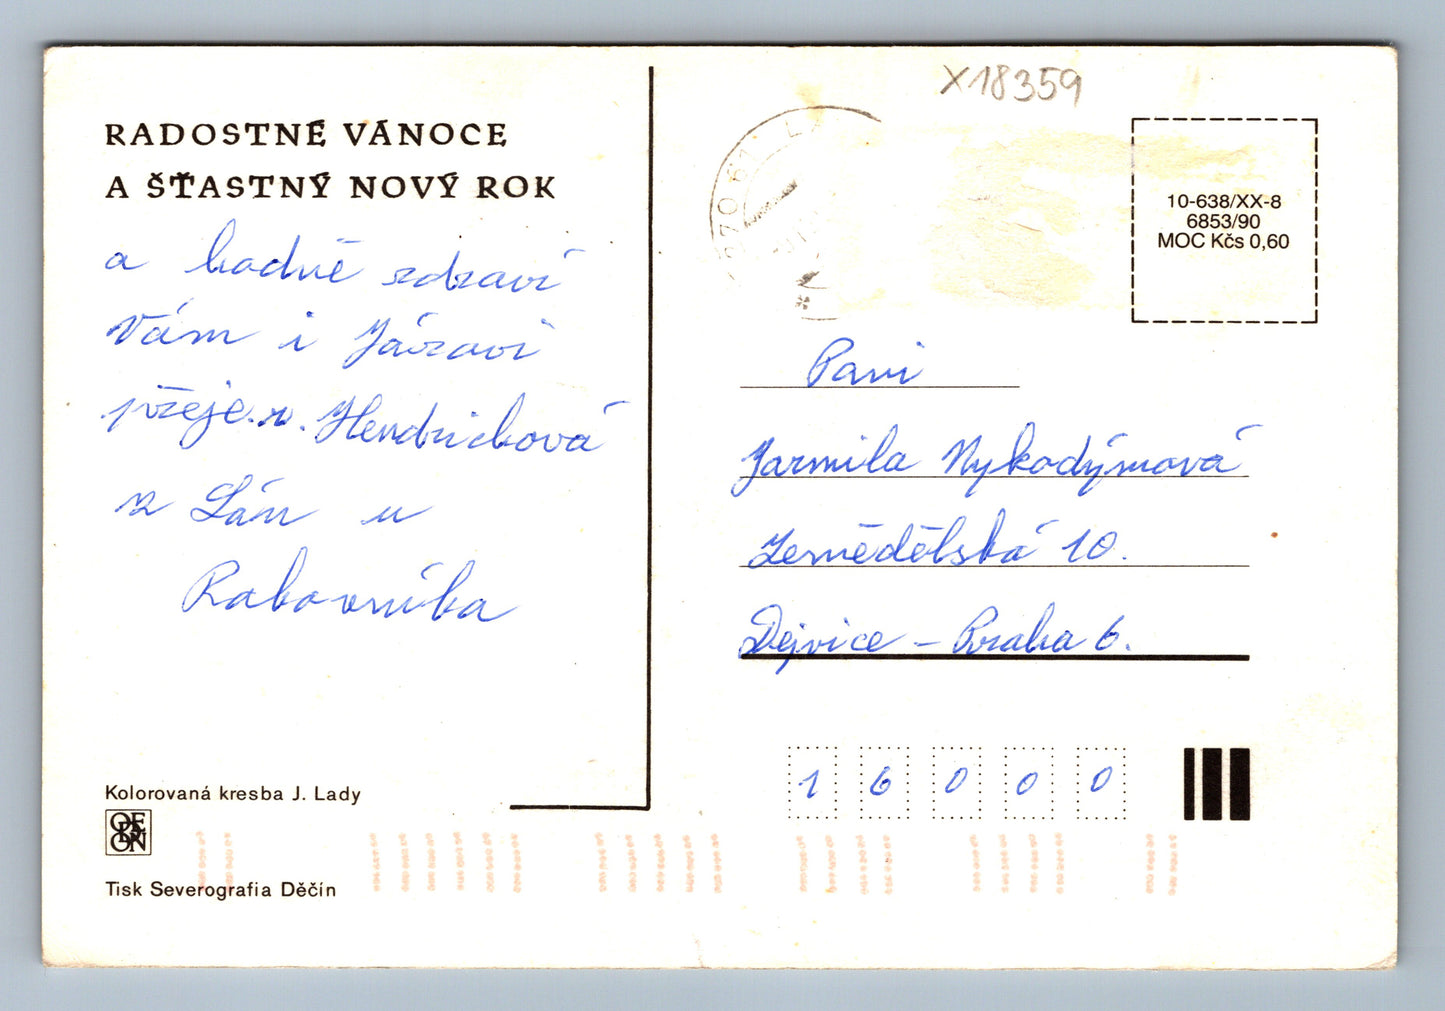 RADOSTNÉ VÁNOCE
A ŠŤASTNÝ NOVÝ ROK
a hodně zdraví
Vám i Járovi
přeje.
Hendrichová
z Lán u
Rakovníka
Kolorovaná kresba J. Lady
ODEON
Tisk Severografia Děčín
X18359
270 61 LÁ
10-638/XX-8
6853/90
MOC Kčs 0,60
Paní
Jarmila Nykodýmová
Zemědělská 10.
Dejvice - Praha 6.
16000